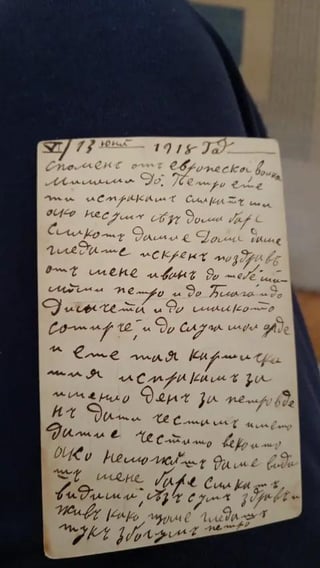 VI/13 юний 1918 год
споменъ отъ европеска война
Милима До. Петро еве
ти испракамъ сликатъ ти
ако несумъ изъ дома баре
сликатъ да ми е Дома да ме
гледате искренъ поздравъ
отъ мене иванъ до тебе
петро и до Благa и до
Димчета и до малкото
сотирче, и до
и еве таа картичка
тиа испракамъ за
именио денъ за петровде
нъ да ти честитамъ името
да ти е честито вековито
ако неможитъ да ме вида
тъ мене баре сликатъ
видими изъ сумъ здравъ и
живъ како що ме гледатъ
тукъ збогумъ петро